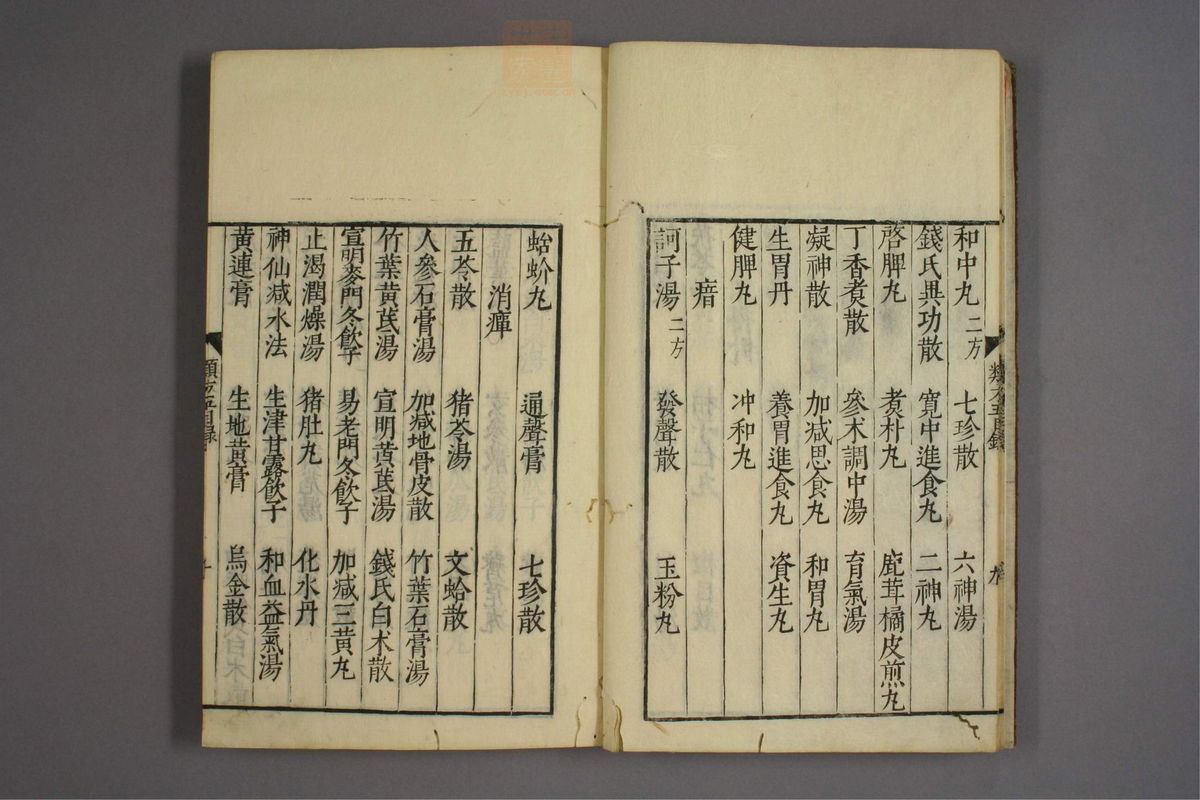 和中丸 二方 七珍散 六神湯
錢氏異功散 寛中進食丸 二神丸
啓脾丸 煑朴丸 鹿茸橘皮煎丸
丁香煑散 參术調中湯 育氣湯
凝神散 加减思食丸 和胃丸
生胃丹 養胃進食丸 資生丸
健脾丸 冲和丸
瘖
訶子湯 二方 發聲散 玉粉丸
蛤蚧丸 通聲膏 七珍散
消癉
五苓散 猪苓湯 文蛤散
人參石膏湯 加减地骨皮散 竹葉石膏湯
竹葉黄茋湯 宣明黄茋湯 錢氏白术散
宣明麥門冬飲子 易老門冬飲子 加减三黄丸
止渴潤燥湯 猪肚丸 化水丹
神仙减水法 生津甘露飲子 和血益氣湯
黄連膏 生地黄膏 烏金散
類方五目錄